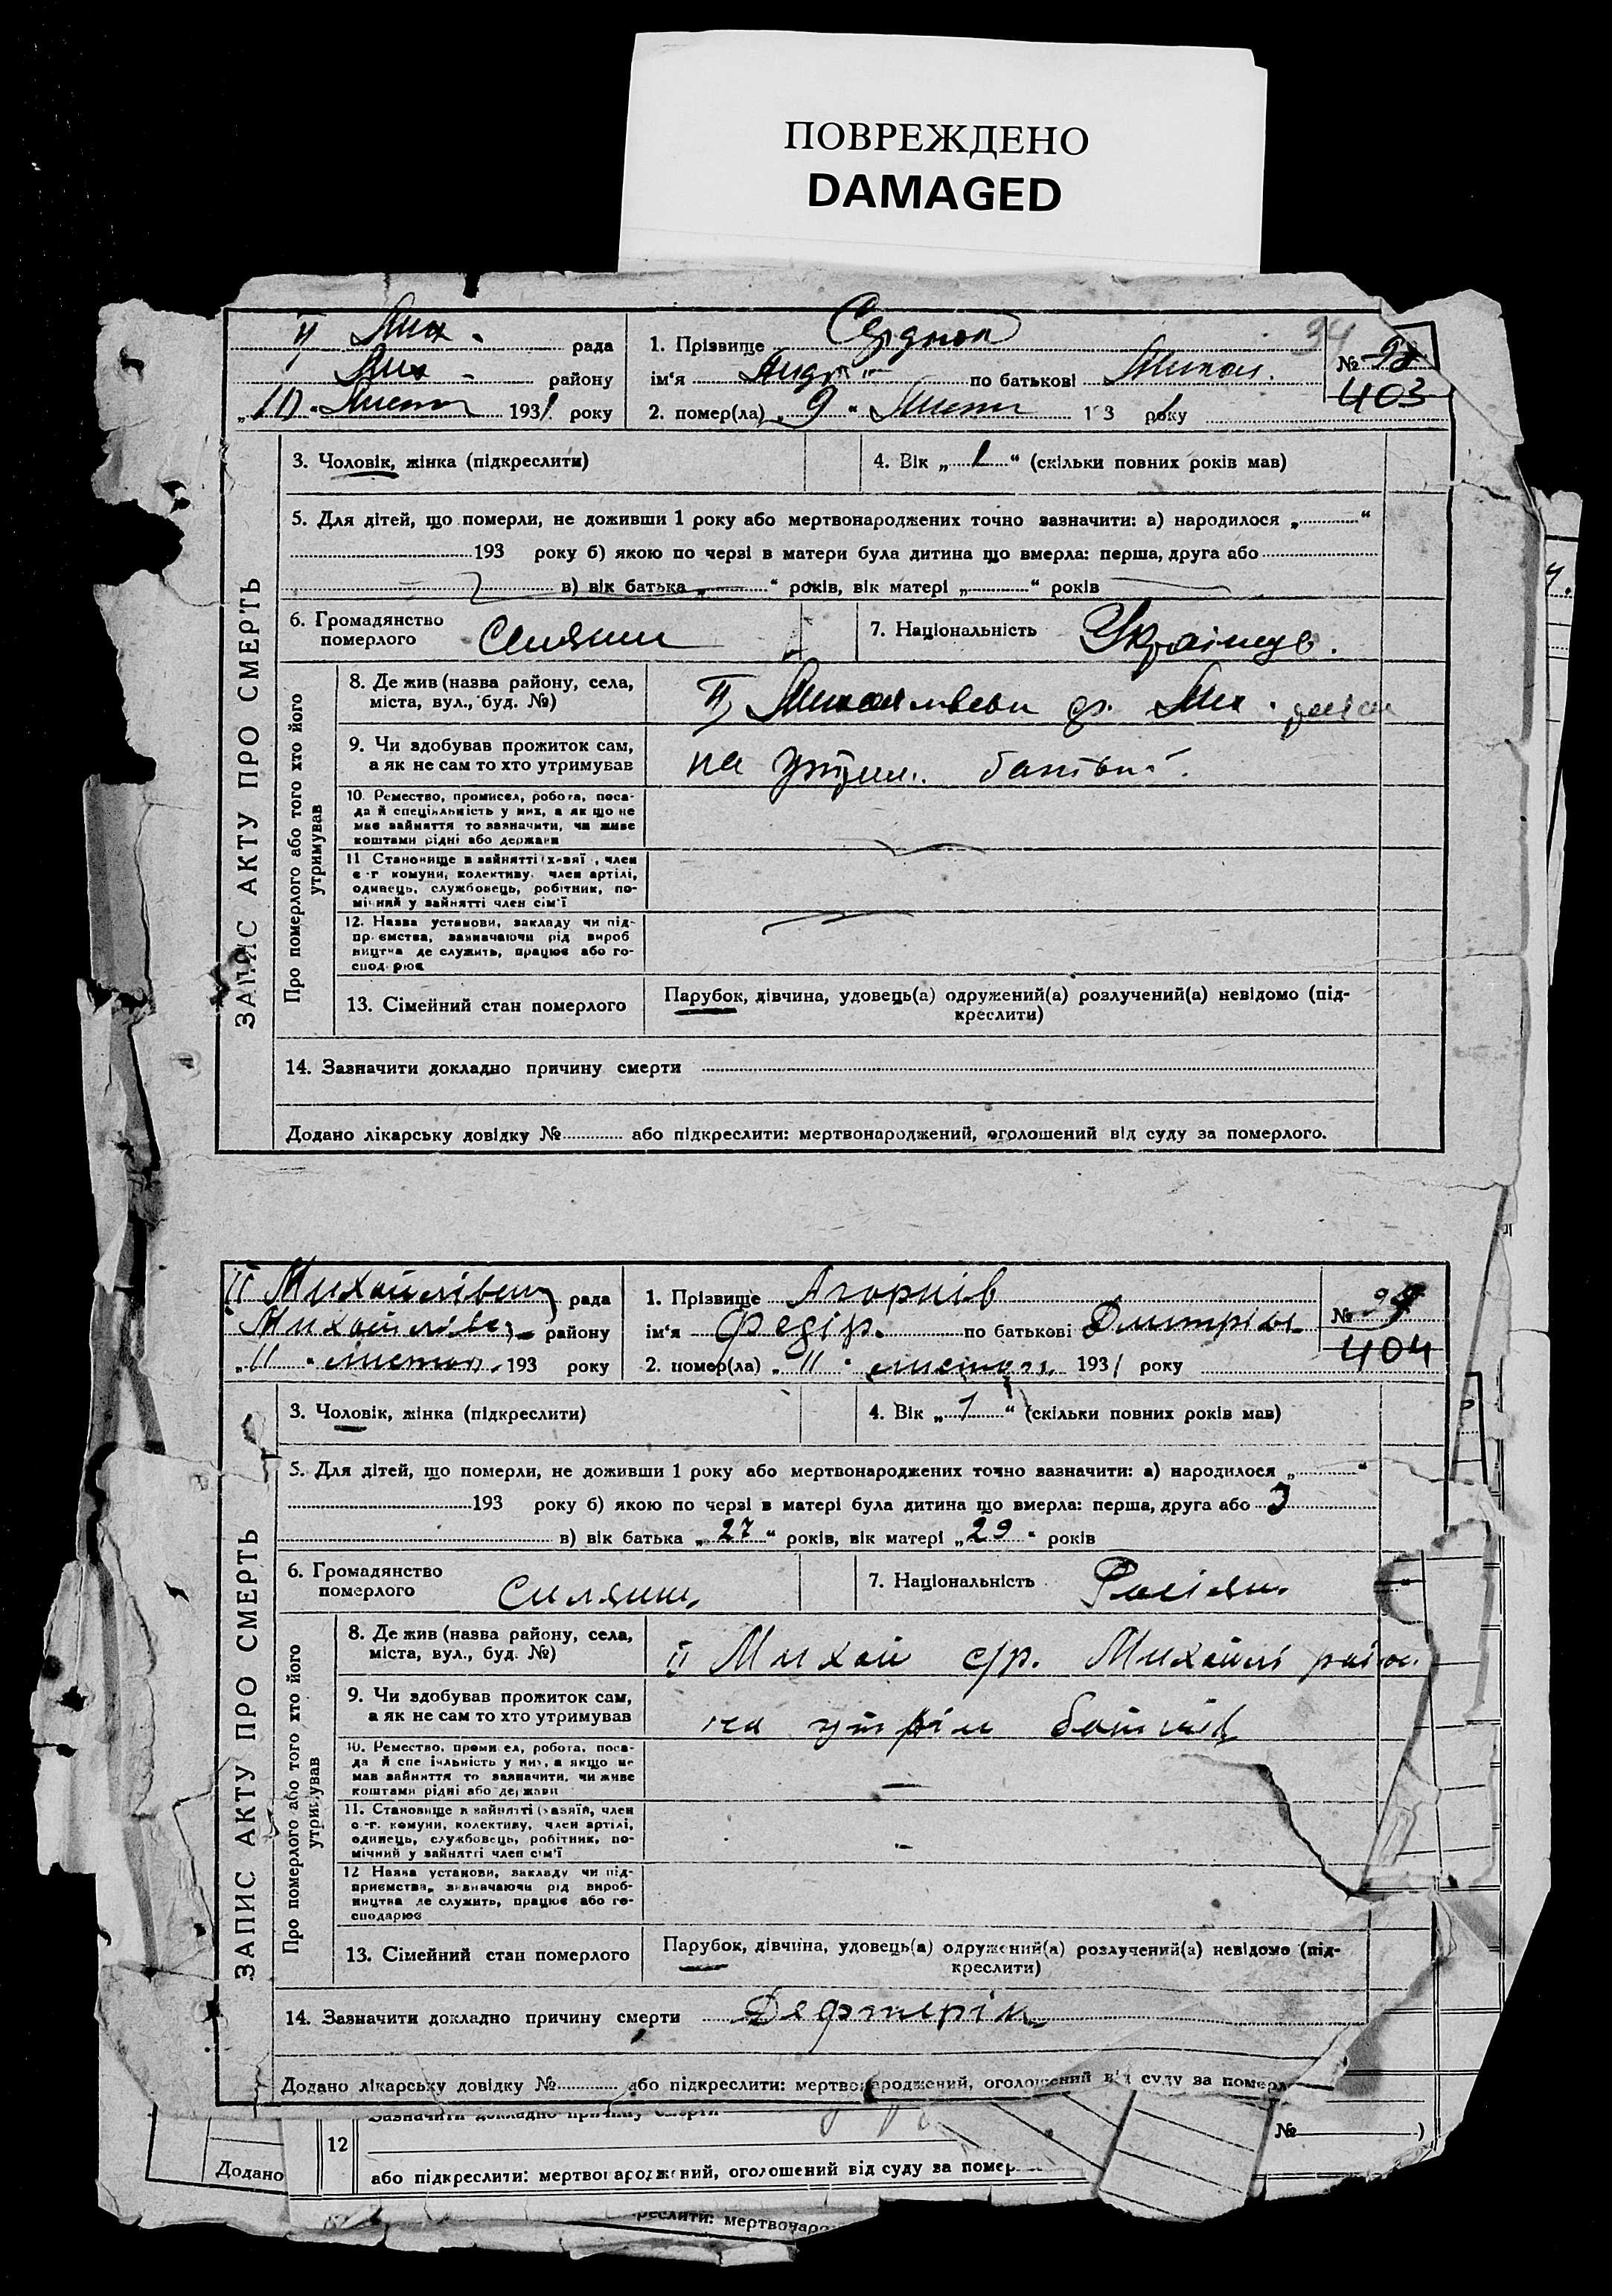 ПОВРЕЖДЕНО
DAMAGED
II Мих. рада
Мих- району
„10“ Листоп 1931 року
1. Прізвище
34
№ 98
403
ім‘я Андр по батькові Микол.
2. помер(ла) „9“ Листоп 193 року
ЗАПИС АКТУ ПРО СМЕРТЬ
3. Чоловік, жінка (підкреслити)
4. Вік „1“ (скільки повних років мав)
5. Для дітей, що померли, не доживши 1 року або мертвонароджених точно зазначити: а) народилося „ “
193 року б) якою по черзі в матери була дитина що вмерла: перша, друга або
в) вік батька „ “ років, вік матері „ “ років
6. Громадянство померлого
Селянин
7. Національність
Українць.
Про померлого або того хто його утримував
8. Де жив (назва району, села,
міста, вул., буд. №)
II Михайлівськ ср. Мих. район
9. Чи здобував прожиток сам,
а як не сам то хто утримував
на утрим. батьків.
10. Ремество, промисел, робота, поса-
да й спеціяльність у них, а як що не
мав зайняття то зазначити, чи живе
коштами рідні або держави
11 Становище в зайнятті (хазяї , член
с -г комуни, колективу, член артілі,
одинець, службовець, робітник, по-
мічний у зайнятті член сім‘ї
12. Назва установи, закладу чи під-
приємства, зазначаючи рід вироб
ництва де служить, працює або го-
сподарює
13. Сімейний стан померлого
Парубок, дівчина, удовець(а) одружений(а) розлучений(а) невідомо (під-
креслити)
14. Зазначити докладно причину смерти
Додано лікарську довідку № або підкреслити: мертвонароджений, оголошений від суду за померлого.
II Михайлівськ рада
Михайлівсь- району
„11“ листоп. 193 року
1. Прізвище Агорнів
№ 99
404
ім‘я Федір. по батькові Дмитрів
2. помер(ла) „11“ листоп. 1931 року
ЗАПИС АКТУ ПРО СМЕРТЬ
3. Чоловік, жінка (підкреслити)
4. Вік „1“ (скільки повних років мав)
5. Для дітей, що померли, не доживши 1 року або мертвонароджених точно зазначити: а) народилося „ “
193 року б) якою по черзі в матері була дитина що вмерла: перша, друга або 3
в) вік батька „27“ років, вік матері „29“ років
6. Громадянство померлого
Силянин
7. Національність
Росіян.
Про померлого або того хто його утримував
8. Де жив (назва району, села,
міста, вул., буд. №)
II Михай с/р. Михайлі район
9. Чи здобував прожиток сам,
а як не сам то хто утримував
на утрім батьків
10. Ремество, промисел, робота, поса-
да й спеціяльність у них, а якщо не
мав зайняття то зазначити, чи живе
коштами рідні або держави
11. Становище в зайнятті (хазяїн, член
с -г. комуни, колективу, член артілі,
одинець, службовець, робітник, по-
мічний у зайнятті член сім‘ї
12 Назва установи, закладу чи під-
приємства, зазначаючи рід вироб-
ництва де служить, працює або го-
сподарює
13. Сімейний стан померлого
Парубок, дівчина, удовець(а) одружений(а) розлучений(а) невідомо (під-
креслити)
14. Зазначити докладно причину смерти Дефтерія
Додано лікарську довідку № або підкреслити: мертвонароджений, оголошений від суду за померл
Зазначити докладно причину смерти
12
№ )
Додано
або підкреслити: мертвонароджений, оголошений від суду за помер
реслити: мертвонаро